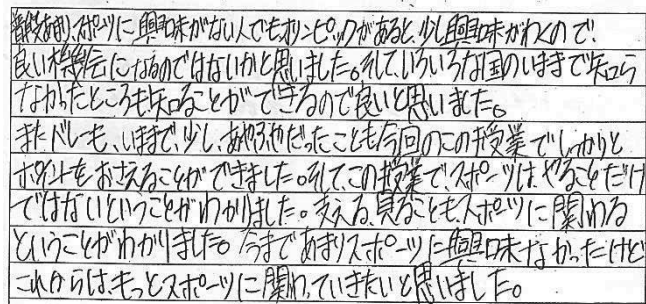 普段あまりスポーツに興味がない人でもオリンピックがあると、少し興味がわくので、
良い機会になるのではないかと思いました。そして、いろいろな国のいままで知ら
なかったところも知ることができるので良いと思いました。
また、バレーも、いままで、少し、あやふやだったことも今回のこの授業でしっかりと
ポイントをおさえることができました。そして、この授業で、スポーツは、やることだけ
ではないということがわかりました。支える、見ることも、スポーツに関わる
ということがわかりました。今まであまりスポーツに興味なかったけど
これからは、もっとスポーツに関わっていきたいと思いました。